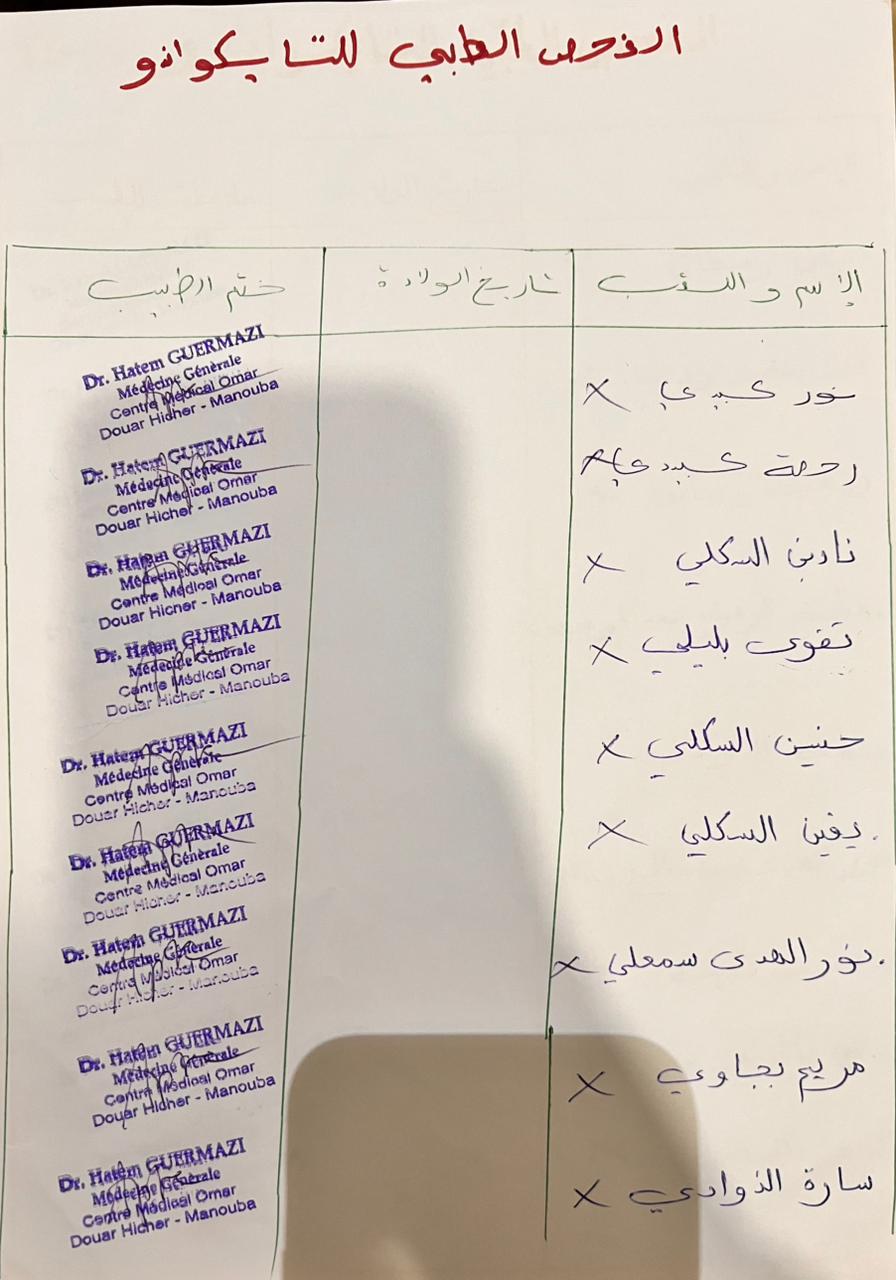 الفحص الطبي للتايكواندو
الإسم و اللقب
تاريخ الولادة
ختم الطبيب
نور كبيدي X
Dr. Hatem GUERMAZI
Médecine Générale
Centre Médical Omar
Douar Hicher - Manouba
رحمة كبيدي X
Dr. Hatem GUERMAZI
Médecine Générale
Centre Médical Omar
Douar Hicher - Manouba
نادين السكلي X
Dr. Hatem GUERMAZI
Médecine Générale
Centre Médical Omar
Douar Hicher - Manouba
تقوى بليلي X
Dr. Hatem GUERMAZI
Médecine Générale
Centre Médical Omar
Douar Hicher - Manouba
حنين السكلي X
Dr. Hatem GUERMAZI
Médecine Générale
Centre Médical Omar
Douar Hicher - Manouba
يقين السكلي X
Dr. Hatem GUERMAZI
Médecine Générale
Centre Médical Omar
Douar Hicher - Manouba
نور الهدى سمعلي X
Dr. Hatem GUERMAZI
Médecine Générale
Centre Médical Omar
Douar Hicher - Manouba
مريم بجاوي X
Dr. Hatem GUERMAZI
Médecine Générale
Centre Médical Omar
Douar Hicher - Manouba
سارة الذوادي X
Dr. Hatem GUERMAZI
Médecine Générale
Centre Médical Omar
Douar Hicher - Manouba